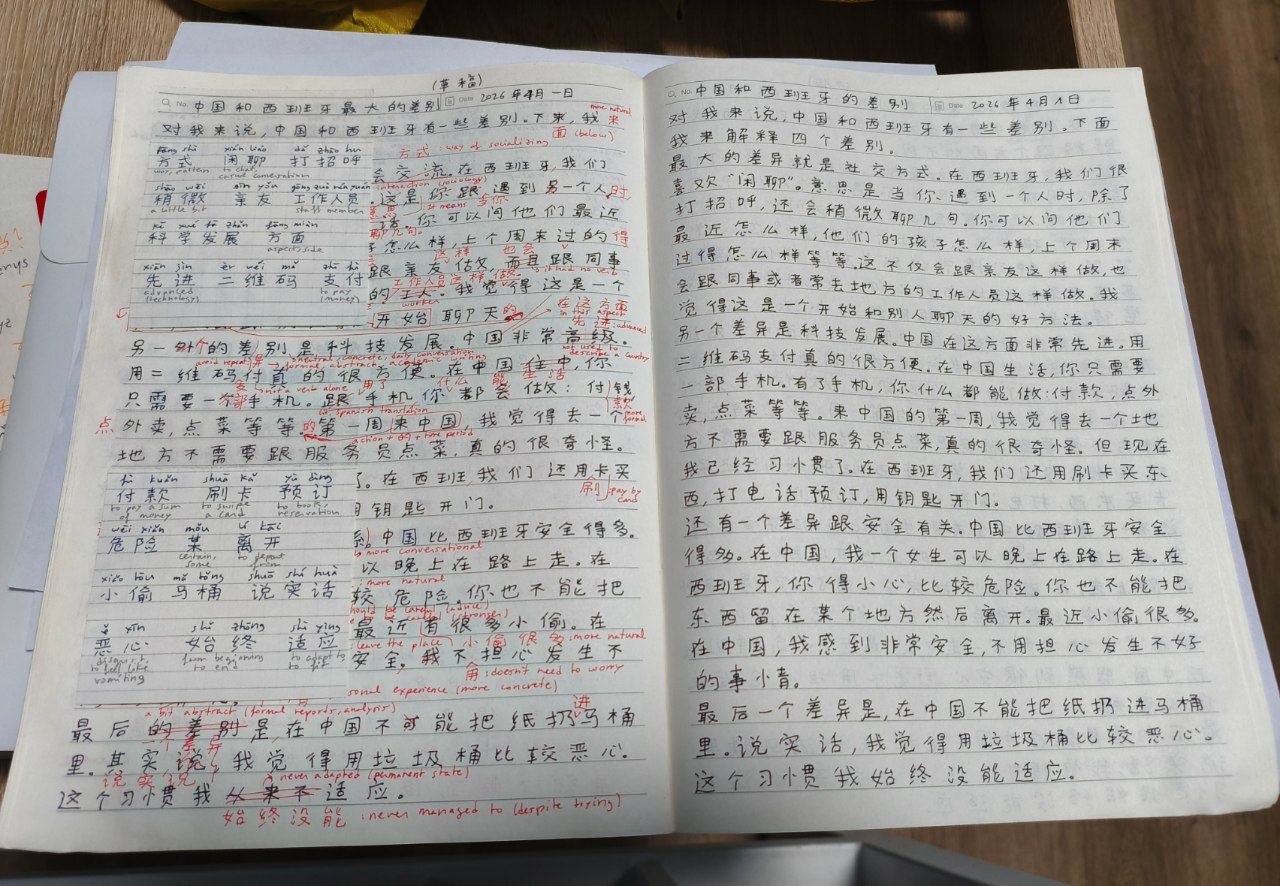 (草稿)
No. 中国和西班牙最大的差别 Date 2026年4月一日
more natural
对我来说,中国和西班牙有一些差别。下来,我来
面 (below)
fāng shì xián liáo dǎ zhāo hu
方式 闲聊 打招呼
way, pattern to chat, casual conversation
shāo wēi qīn yǒu gōng zuò rén yuán
稍微 亲友 工作人员
a little bit staff member
kē xué fā zhǎn fāng miàn
科学发展 方面
aspect, side
xiān jìn èr wéi mǎ zhī fù
先进 二维码 支付
advanced (technology) to pay (money)
方式: way of socializing
会交流。在西班牙,我们
interaction (sociology)
。这是你跟遇到另一个人时
意思 : it means 当你
你可以问他们最近
聊几句。
子怎么样,上个周末过的得
这样 也会
跟亲友做, 而且跟同事
工作人员
的工人。我觉得这是一个
worker
开始聊天的
在这方面
in this aspect
先进: advanced
另一外个的差别是科技发展。中国非常高级。
not used to describe a country
avoid repeat
neutral, concrete, daily conversation
formal, abstract, academic writing
用二维码付真的很方便。在中国住中,你
生活
支 not verb alone 用了 什么 能
只需要一个部手机。跟手机你都会做:付钱
款
more formal
in spanish translation
点外卖,点菜等等。的第一周来中国,我觉得去一个
action + 的 + time period
地方不需要跟服务员点菜,真的很奇怪。
fù kuǎn shuā kǎ yù dìng
付款 刷卡 预订
to pay a sum of money to swipe a card to book, reservation
wēi xiǎn mǒu lí kāi
危险 某 离开
certain, some to depart from
xiǎo tōu mǎ tǒng shuō shí huà
小偷 马桶 说实话
ě xīn shǐ zhōng shì yìng
恶心 始终 适应
disgust, to feel like vomiting from beginning to end to adapt to, to fit
了。在西班,我们还用卡买
刷 : pay by card
用钥匙开门。
中国比西班牙安全得多。
: more conversational
以晚上在路上走。在
: more natural
较危险。你也不能把
should be careful (advice)
(stronger)
最近有很多小偷。在
: leave the place 小偷很多 : more natural
安全,我不担心发生不
用 : doesn't need to worry
sonal experience (more concrete)
a bit abstract (formal reports, analysis)
进
最后的差别是,在中国不可能把纸扔马桶
个差异
里。其实说,我觉得用垃圾桶比较恶心。
说实话, never adapted (permanent state)
这个习惯我从来不适应。
始终没能 : never managed to (despite trying)
No. 中国和西班牙的差别 Date 2026年4月1日
对我来说,中国和西班牙有一些差别。下面
我来解释四个差别。
最大的差异就是社交方式。在西班牙,我们很
喜欢"闲聊"。意思是当你遇到一个人时,除了
打招呼,还会稍微聊几句。你可以问他们
最近怎么样,他们的孩子怎么样,上个周末
过得怎么样等等。这不仅会跟亲友这样做,也
会跟同事或者常去地方的工作人员这样做。我
觉得这是一个开始和别人聊天的好方法。
另一个差异是科技发展。中国在这方面非常先进。用
二维码支付真的很方便。在中国生活,你只需要
一部手机。有了手机,你什么都能做:付款,点外
卖,点菜等等。来中国的第一周,我觉得去一个地
方不需要跟服务员点菜,真的很奇怪。但现在
我已经习惯了。在西班牙,我们还用刷卡买东
西,打电话预订,用钥匙开门。
还有一个差异跟安全有关。中国比西班牙安全
得多。在中国,我一个女生可以晚上在路上走。在
西班牙,你得小心,比较危险。你也不能把
东西留在某个地方然后离开。最近小偷很多。
在中国,我感到非常安全,不用担心发生不好
的事情。
最后一个差异是,在中国不能把纸扔进马桶
里。说实话,我觉得用垃圾桶比较恶心。
这个习惯我始终没能适应。